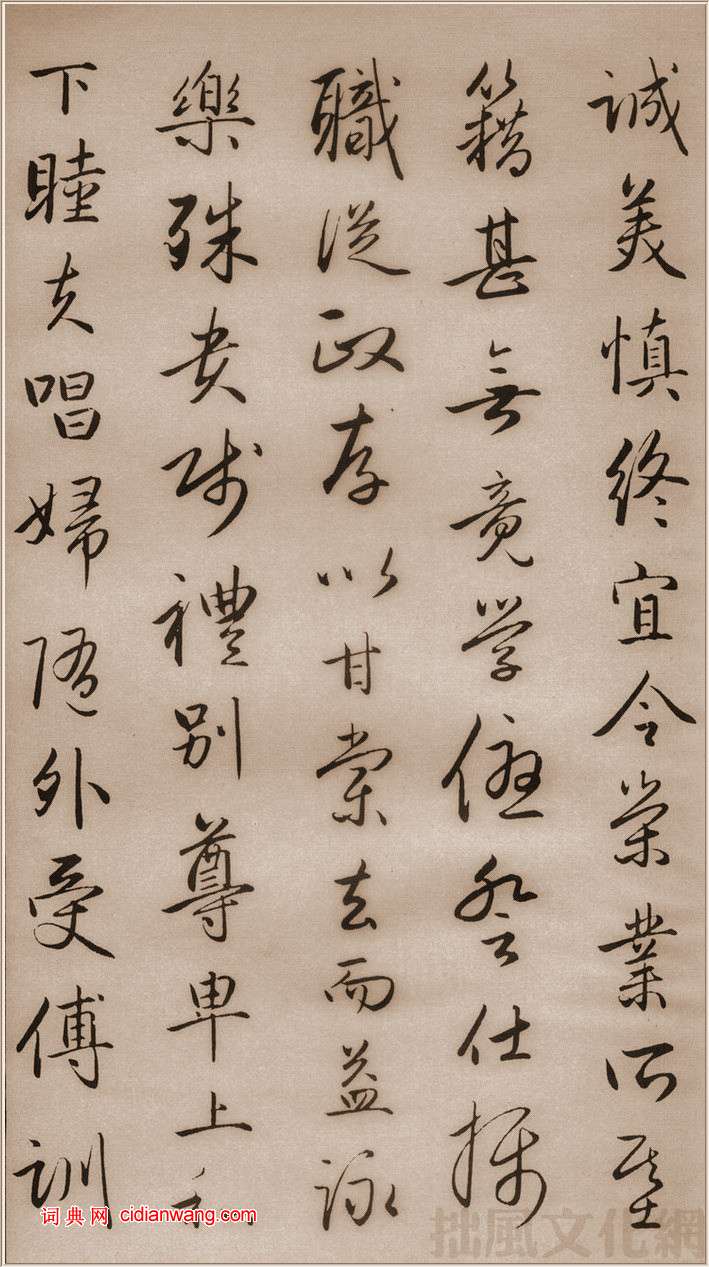 誠美慎終宜令榮業所基
籍甚無竟学優登仕攝
職從政存以甘棠去而益詠
樂殊贵賤禮別尊卑上和
下睦夫唱婦随外受傅訓
词典网 cidianwang.com
拙風文化網